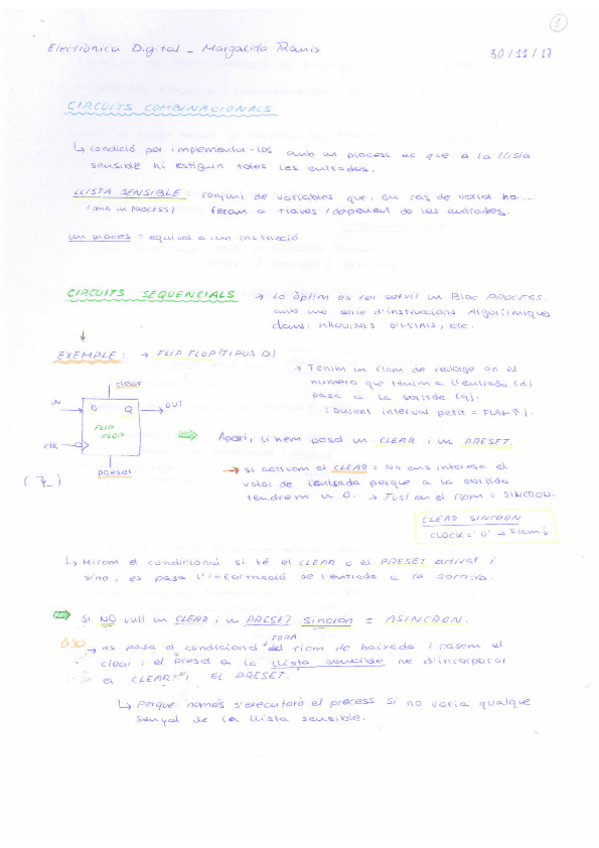 1
Electrònica Digital - Margalida Ramis
30/11/17
CIRCUITS COMBINACIONALS
↳ condició per implementar-los amb un process es que a la llista
sensible hi estiguin totes les entrades.
LLISTA SENSIBLE: conjunt de variables que, en cas de variar ho...
(amb un PROCESS) feram a traves / depenent de les entrades.
un proces: equival a una instrucció
CIRCUITS SEQÜENCIALS → Lo òptim es fer servir un Bloc PROCESS.
amb una serie d'instruccions Algorísmiques
dens: MÀQUINES D'ESTATS, etc.
EXEMPLE: → FLIP FLOP (TIPUS D)
→ Tenim un flam de rellotge en el
numero que tenim a l'entrada (d)
passa a la sortida (q).
(Durant interval petit = FLAM).
clear
IN
D Q
OUT
FLIP
FLOP
CLK
preset
⇒ Apart, li hem posat un CLEAR i un PRESET.
→ Si activam el CLEAR = No ens interesa el
valor de l'entrada perque a la sortida
tendrem un 0. → Just en el flam = SINCRON.
CLEAR SINCRON
CLOCK = '0' → Flam
↳ Miram el condicional si té el CLEAR o el PRESET activat i
sino, es passa l'informació de l'entrada a la sortida.
⇒ Si NO vull un CLEAR i un PRESET sincron = ASINCRON.
→ es posa el condicional FORA del flam de baixada i posam el
clear i el preset a la llista sensible he d'incorporar
el CLEAR i EL PRESET.
↳ Perque només s'executarà el process si no varia qualque
senyal de la llista sensible.